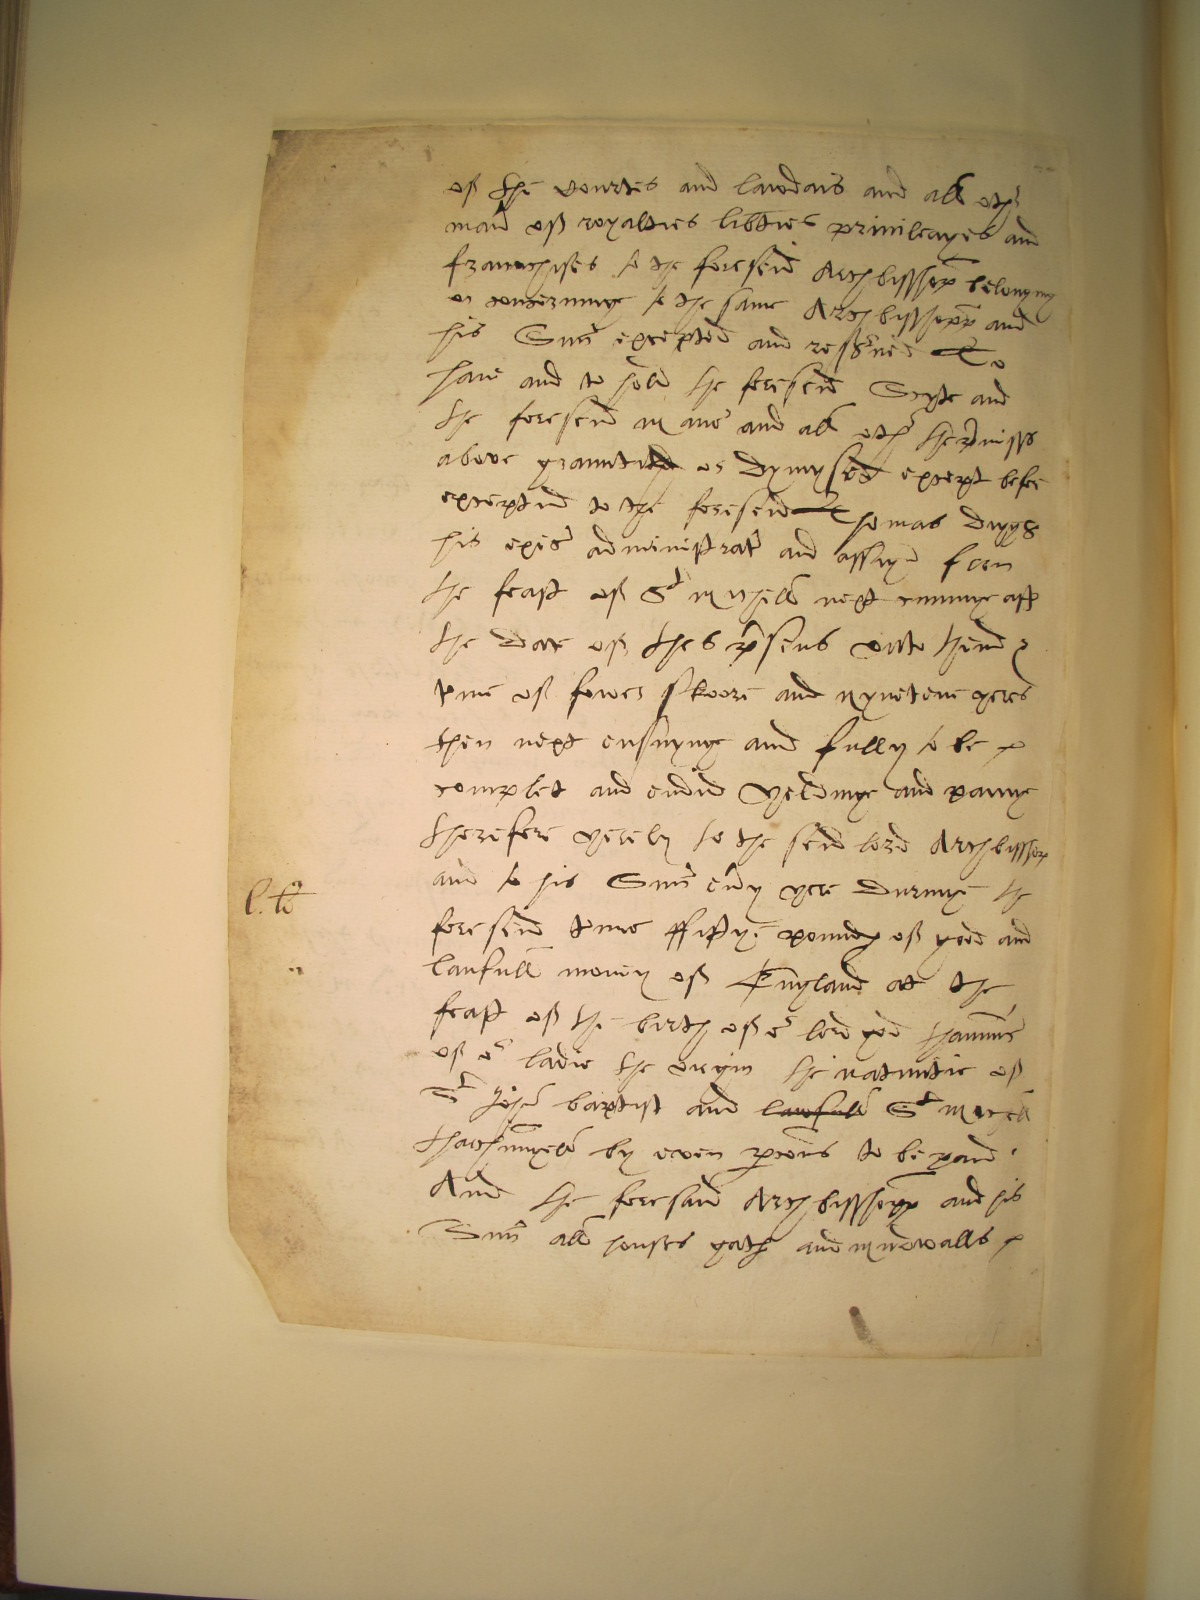 of the Courtes and lawdais and all oth
man of royalties libties privileages and
franchises to the foreseid Archbisshop belonging
or concerninge to the same Archbisshopp and
his Succ excepted and resserved To
have and to hold the foreseid Scyte and
the foreseid manor and all oth the pmisss
above graunted or dymysed except before
exceptid to the foreseid Thomas Diggs
his exec administrat and assign from
the feast of St Michell next cominge aft
the date of thes psens unto thend
tme of fower skoore and nynetene yeres
then next ensuynge and fully to be
complet and endid Yeldinge and painge
therefore yerely to the seid lord Archbisshop
and to his Succ evy yere duringe the
l. li
foreseid tme ffiftye poundes of good and
laufull money of England at the
feast of the birth of or lord god thannunc
of or ladie the virgin the nativitie of
St John baptist and lawfull St Michell
tharchangell by even pcons to be paid
And the foresaid Archbisshopp and his
Succ all houses gat and mudwalls